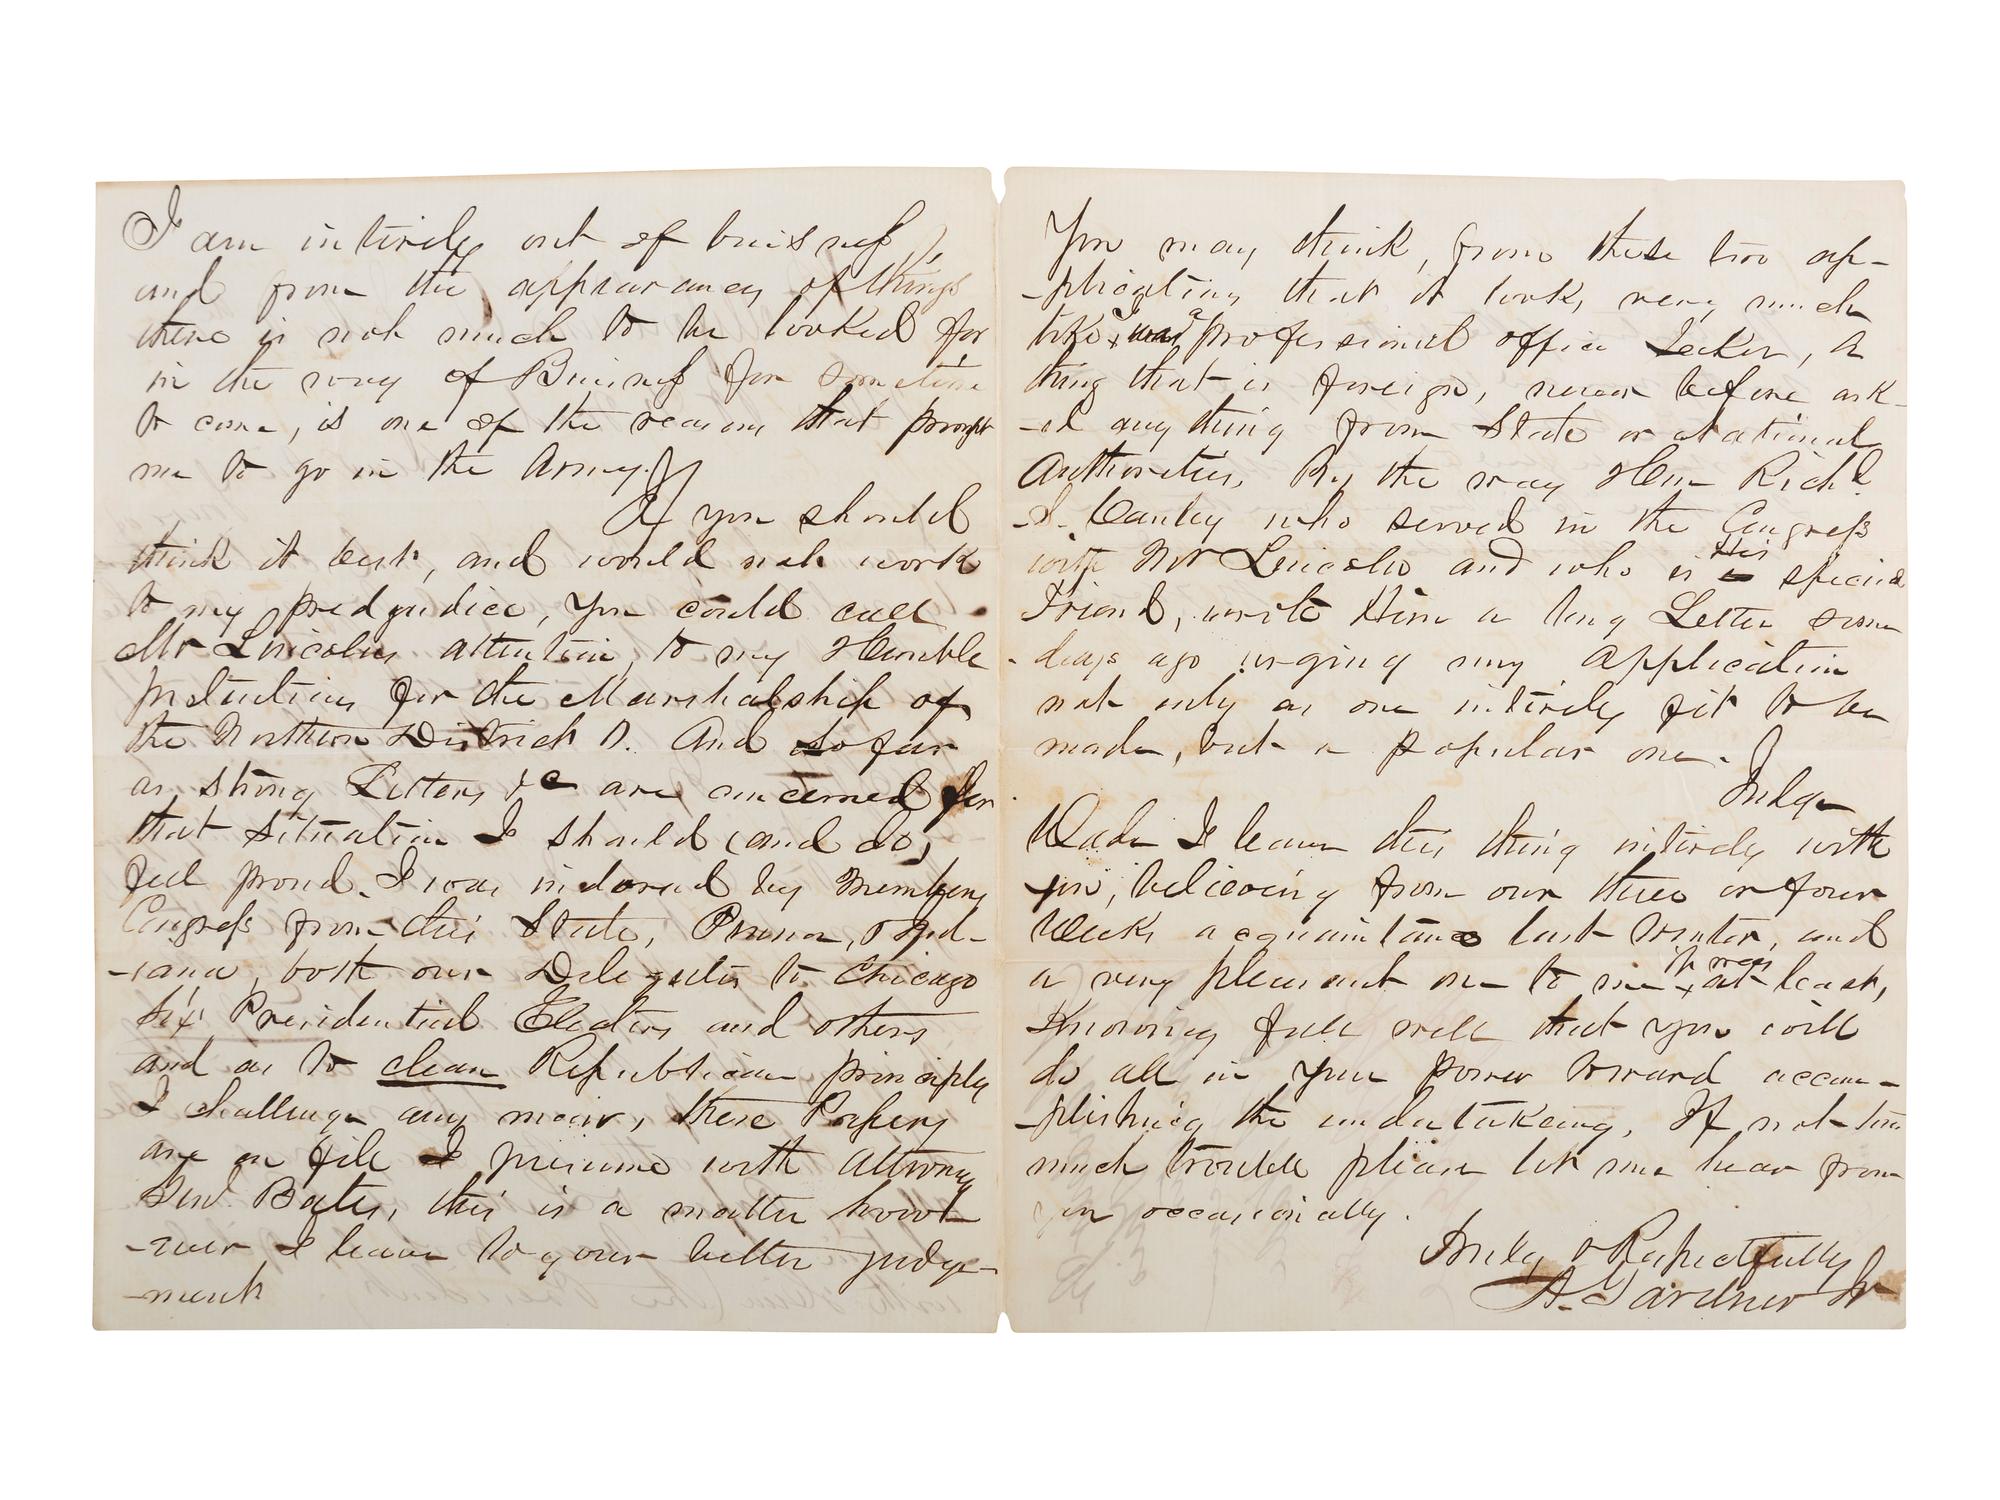 I am intirely out of buisness
and from the appearancy of things
there is not much to be looked for
in the way of Buisness for sometime
to come, is one of the reasons that prompt
me to go in the Army.
If you should
think it best, and would not work
to my predjudice, You could call
Mr Lincolns attention, to my Humble
Pretentions for the Marshalship of
the Northern District O. And so far
as strong Letters &c are concerned for
that situation I should (and do)
feel proud. I was indorsed by Members
Congress from this State, Penna, & Ind-
-iana, both our Delegates to Chicago
six Presidential Electors and others
and as to clean Republican principles
I challenge any man, these Papers
are on file I presume with Attorney
Genl. Bates, this is a matter howe-
-ever I leave to your better judge-
-ment
You may think, from these two ap-
-plications that it looks very much
like I was a professional office Seeker, a
thing that is foreign, never before ask-
-ed anything from State or National
Authorities. By the way Hon Richd.
-S. Canby who served in the Congress
with Mr Lincoln and who is His special
Friend, wrote Him a long Letter some
days ago urging my Application
not only as one intirely fit to be
made, but a popular one.
Judge
Wade I leave this thing intirely with
you, believing from our three or four
Weeks acquaintance last Winter, and
a very pleasant one to me it was at least,
Knowing full well that you will
do all in your power toward accom-
-plishing the undertakeing. If not too
much trouble please let me hear from
you occasionally.
Truly & Respectfully
A. Gardner Jr